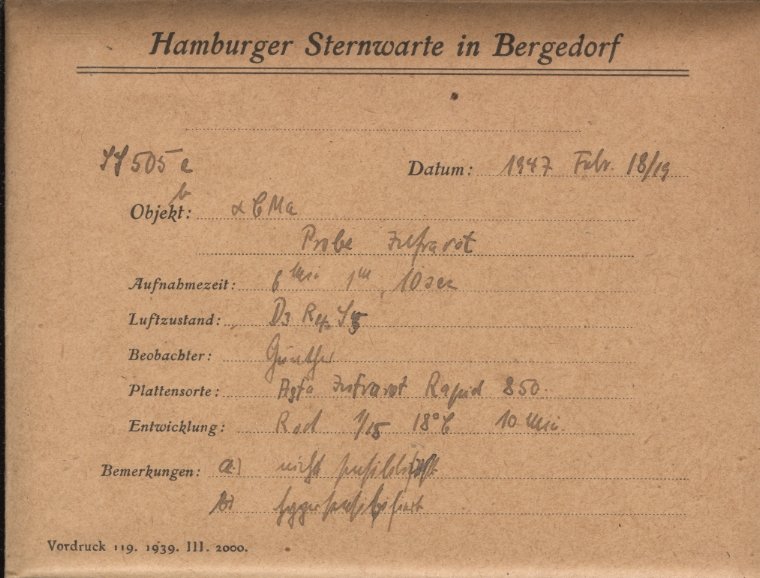 Hamburger Sternwarte in Bergedorf
505
Datum: 1947 Febr. 18/19
b
Objekt: α CMa
Probe Infrarot
Aufnahmezeit: 6 min 1 m, 10 sec
Luftzustand: D3
Beobachter: Günther
Plattensorte: Agfa Infrarot Rapid 850
Entwicklung: Rod 1/15 18°C 10 Min.
Bemerkungen: a) nicht
b)
Vordruck 119. 1939. III. 2000.